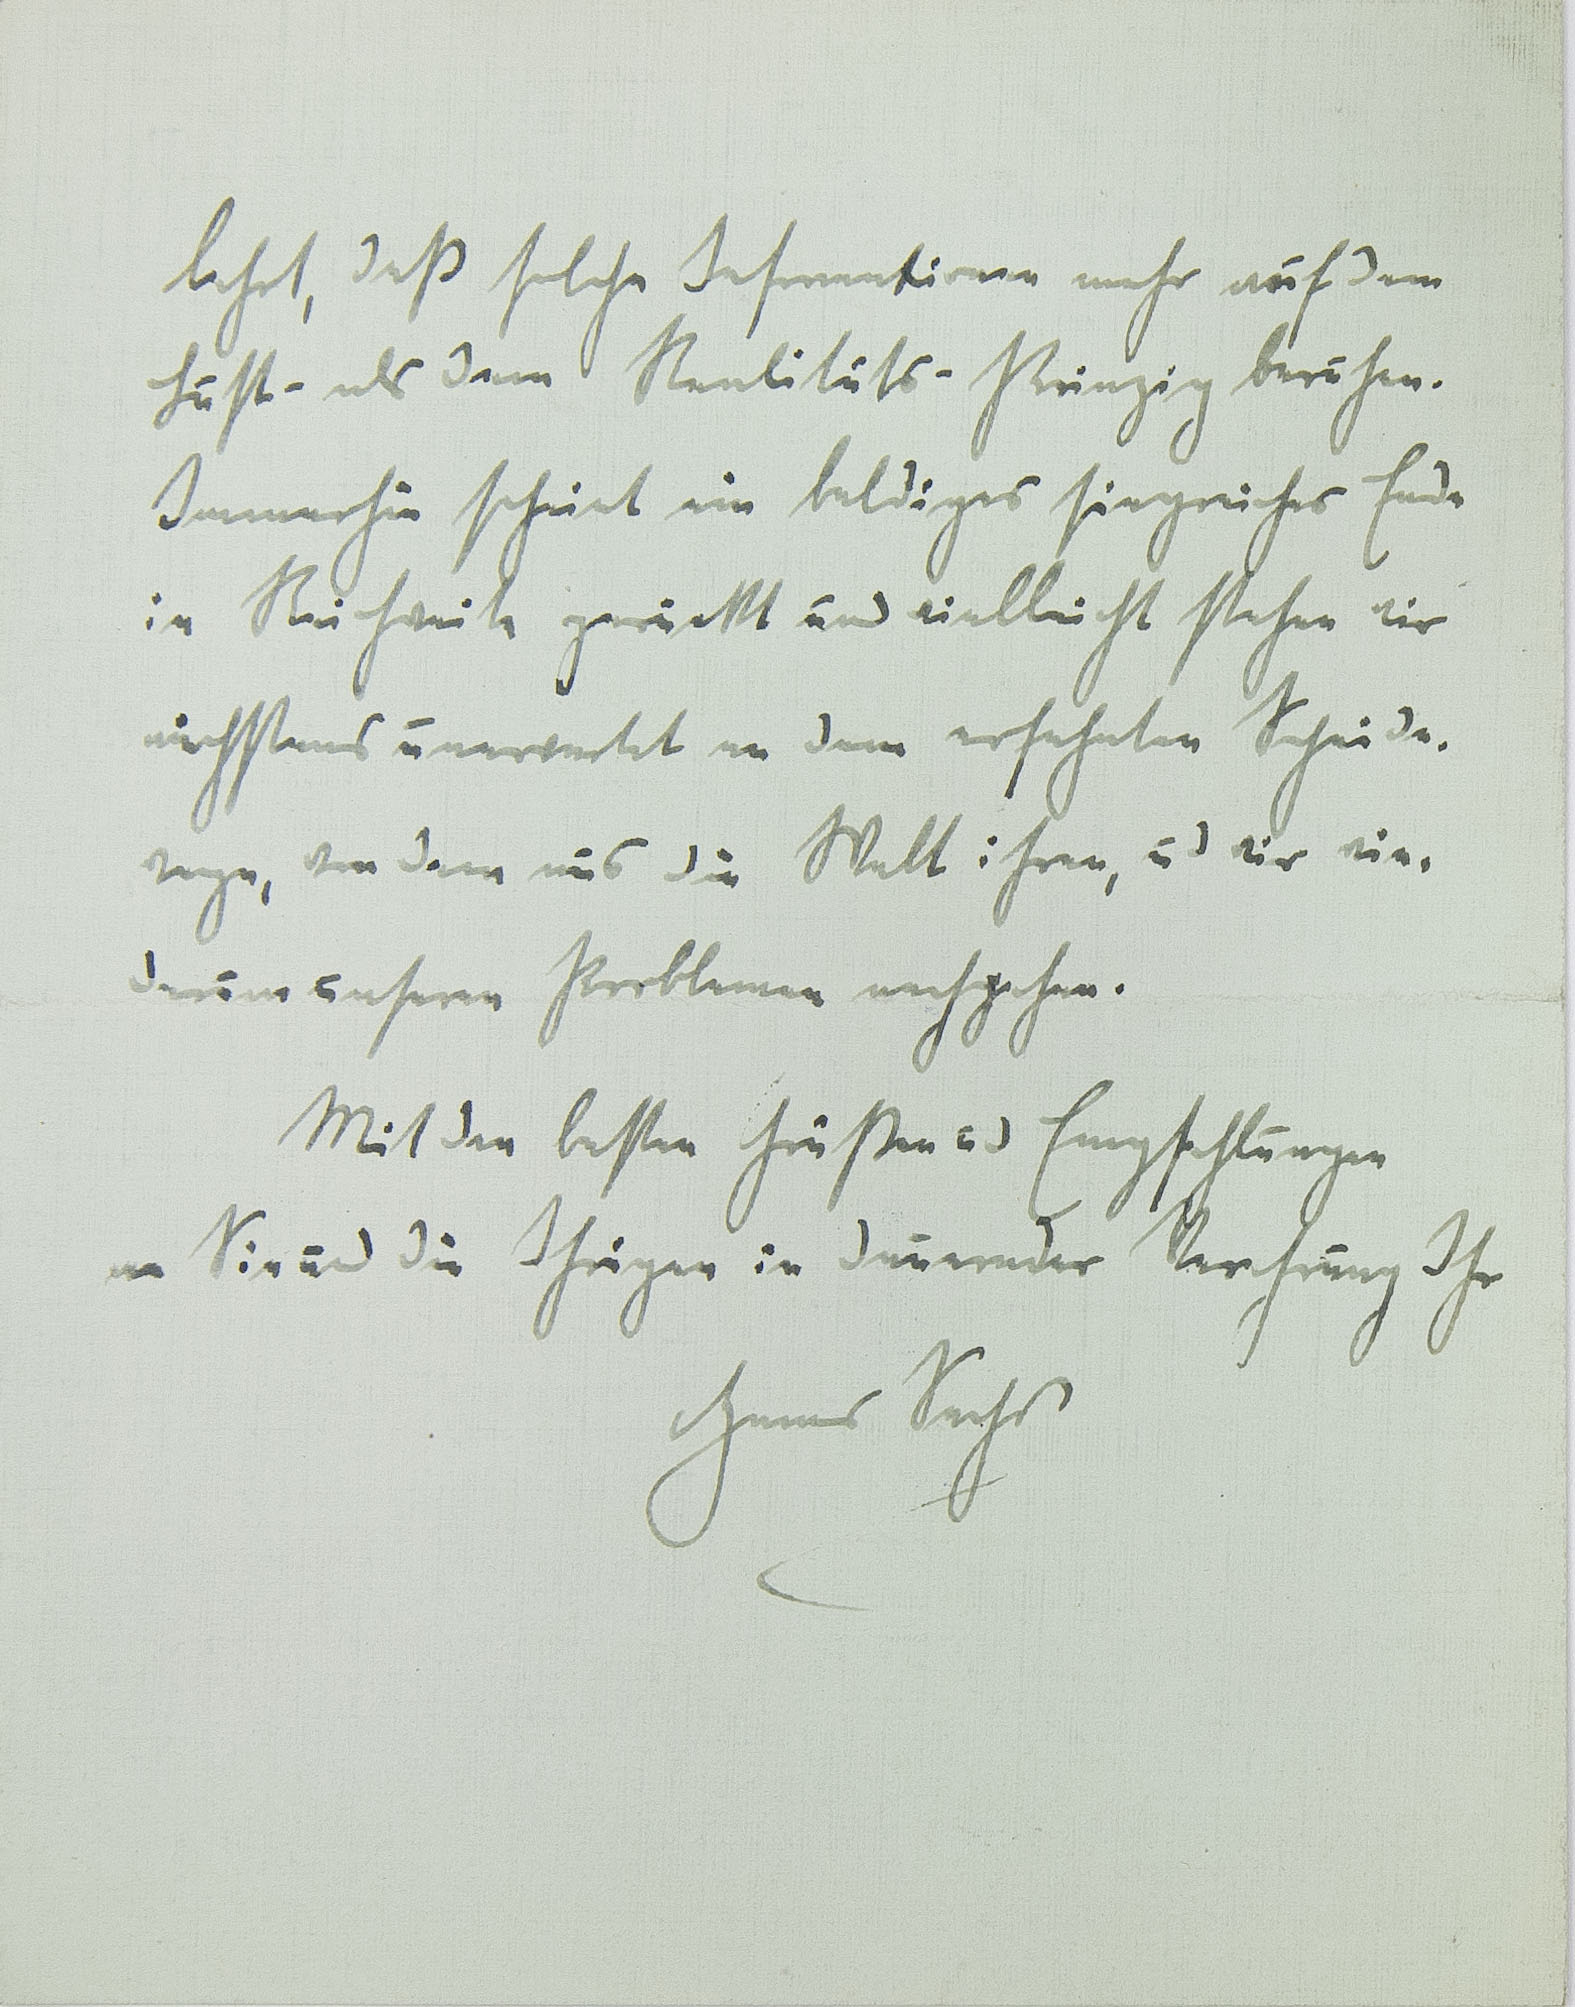 lehrt, daß solche Informationen mehr auf dem
Lust- als dem Realitäts-Prinzig beruhen.
Immerhin scheint ein baldiges siegreiches Ende
in Reichweite gerückt und vielleicht stehen wir
nächstens unerwartet an dem ersehnten Scheide-
wege, von dem aus die Welt ihren, ud wir wie-
derum unseren Problemen nachgehen.
Mit den besten Grüßen ud Empfehlungen
an Sie und die Ihrigen in dauernder Verehrung Ihr
Hanns Sachs